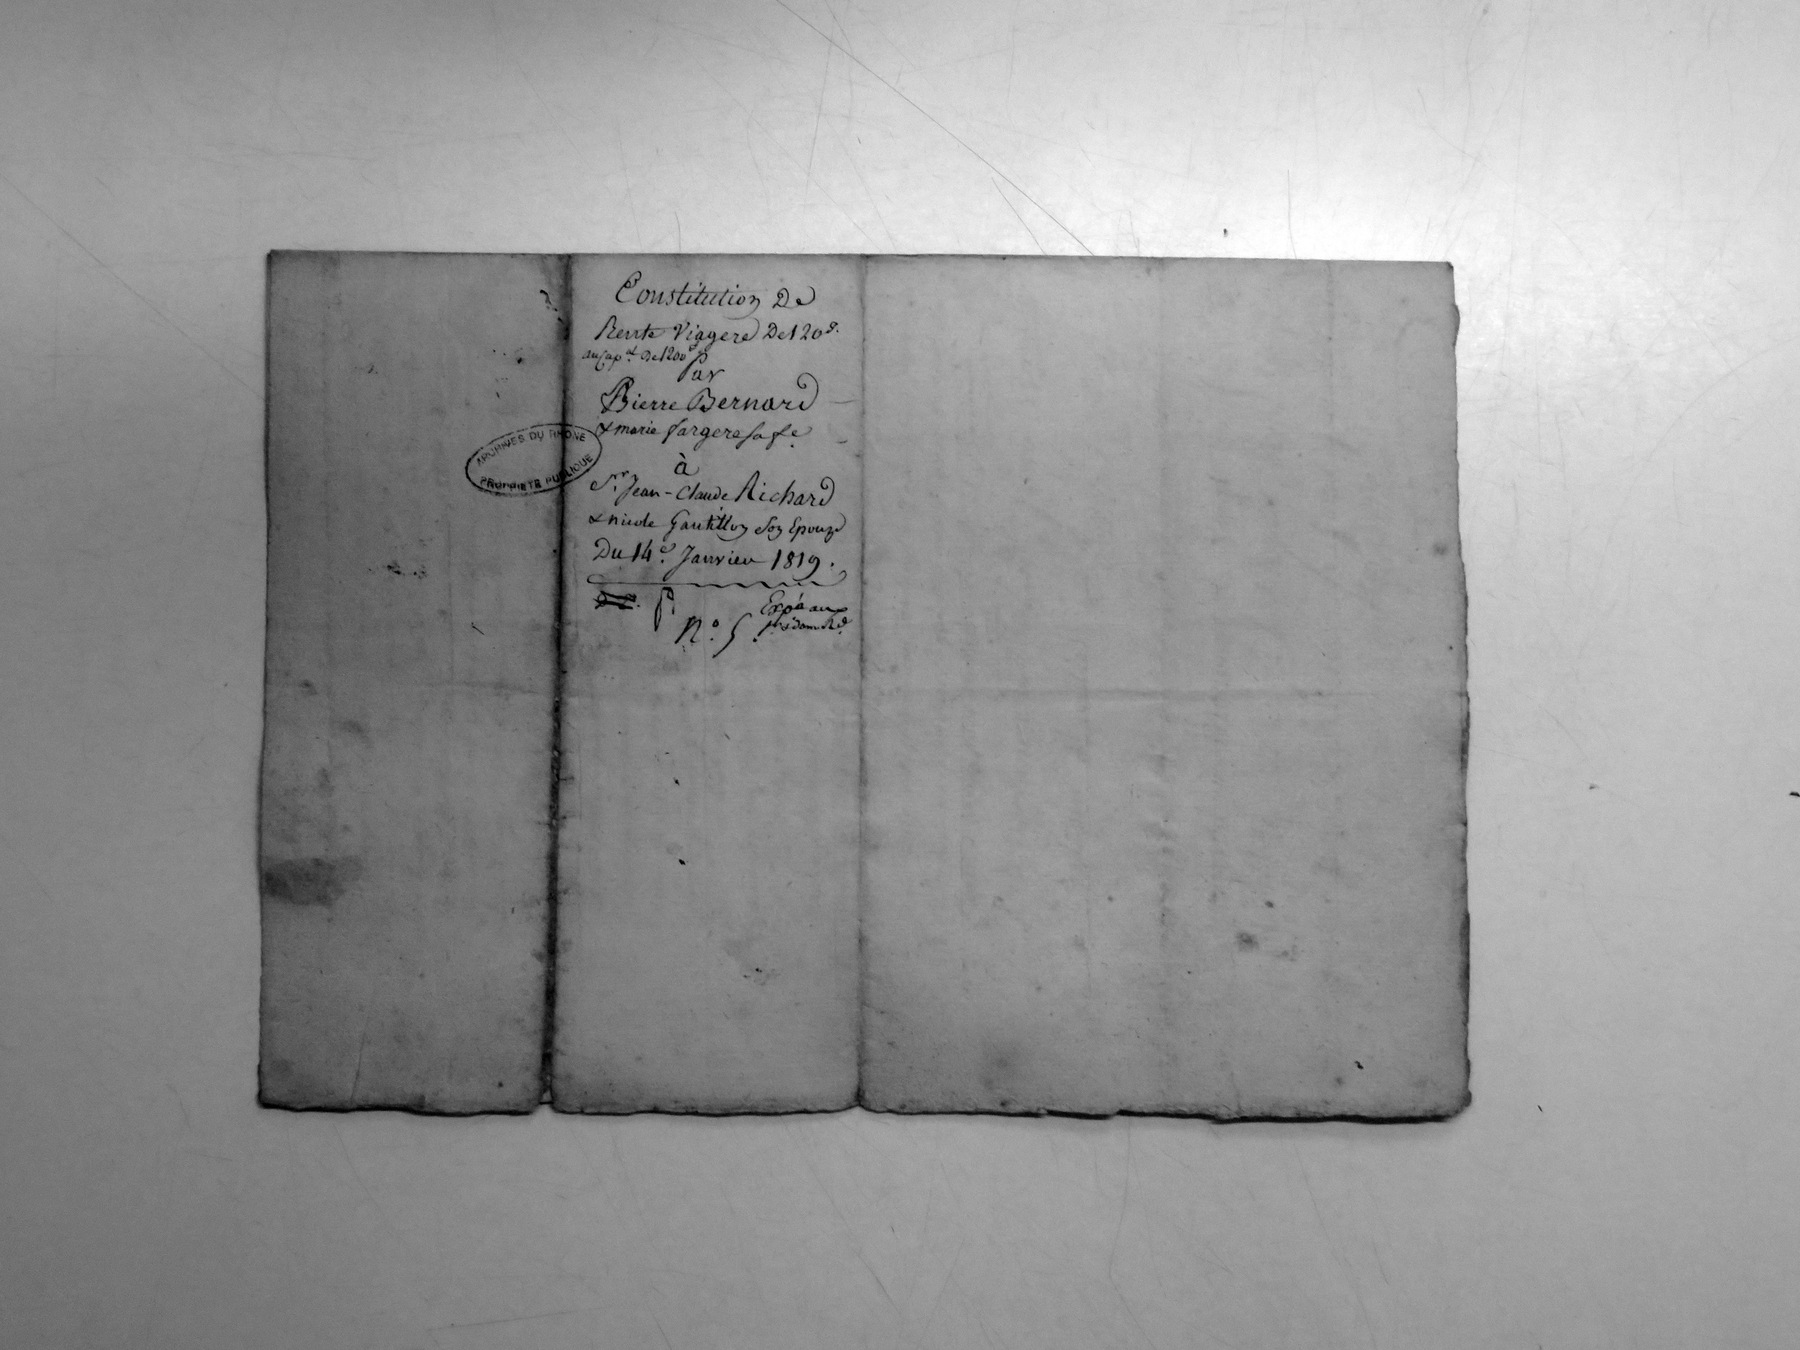 Constitution De
Rente Viagere De 120
au cap.al De 1200
Par
Pierre Bernard
& marie fargere sa fe
à
Sr. Jean-Claude Richard
& nicole Gautillon Son Epouze
Du 14e. Janvier 1819.
Expé aux
No. 5.
ARCHIVES DU RHONE
PROPRIETE PUBLIQUE